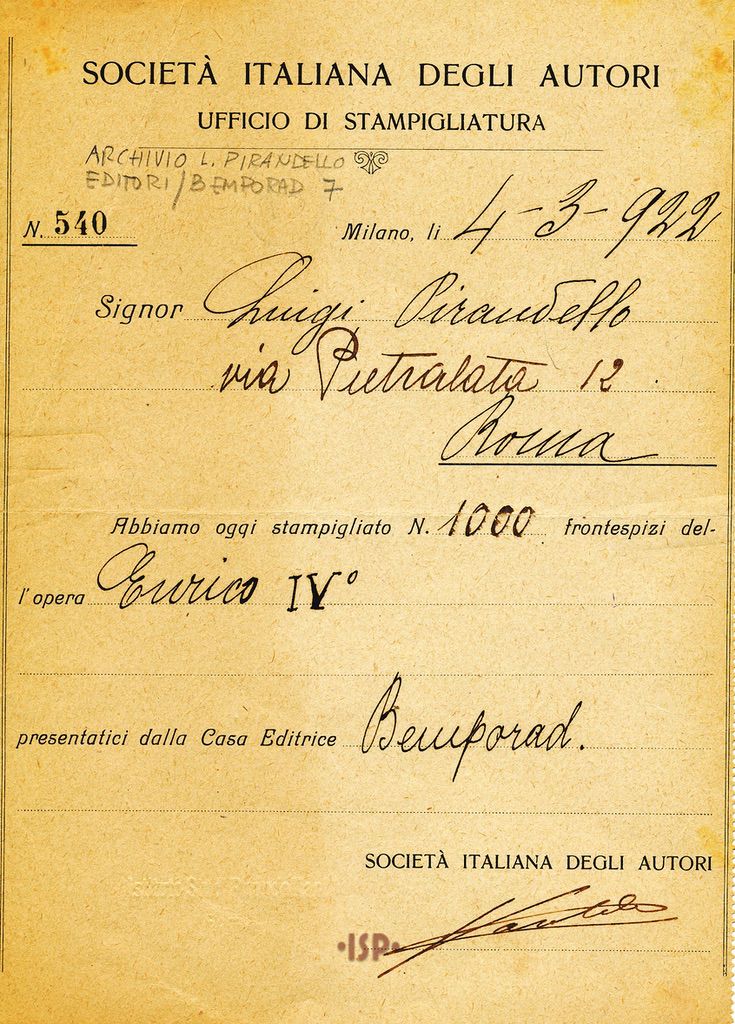 SOCIETÀ ITALIANA DEGLI AUTORI
UFFICIO DI STAMPIGLIATURA
ARCHIVIO L. PIRANDELLO
EDITORI/BEMPORAD 7
N. 540
Milano, li 4-3-922
Signor Luigi Pirandello
via Pietralata 12
Roma
Abbiamo oggi stampigliato N. 1000 frontespizi del-
l'opera Enrico IV°
presentatici dalla Casa Editrice Bemporad.
SOCIETÀ ITALIANA DEGLI AUTORI
·ISP·